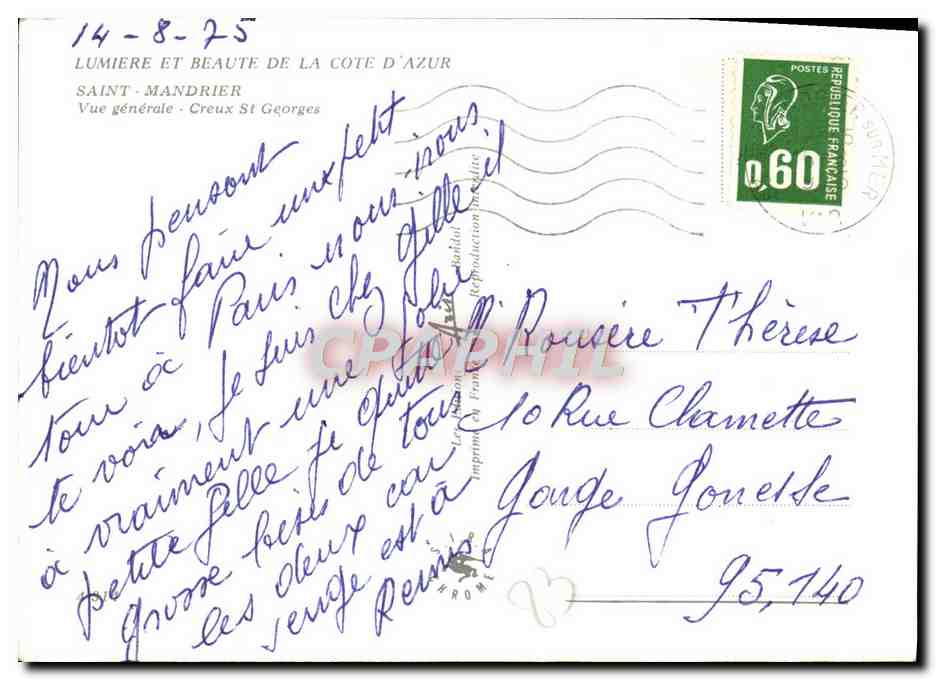 14-8-75
LUMIERE ET BEAUTE DE LA COTE D'AZUR
SAINT - MANDRIER
Vue générale - Creux St Georges
Nous pensont
bientot faire un petit
tour à Paris nous irons
te voir, je suis chez Gille il
à vraiment une jolie
petite fille je
grosse bises de tous
les deux car
serge est à
Reims
POSTES
REPUBLIQUE FRANÇAISE
0,60
SUR MER
Bandol
Imprimé en France
Reproduction interdite
CPAPHIL
Rousère Thérèse
10 Rue Charrette
Garge Gonesse
95,140
23